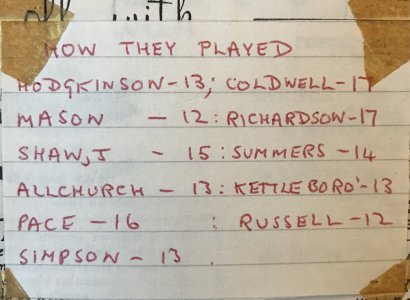 all with
HOW THEY PLAYED
HODGKINSON-13; COLDWELL-17
MASON - 12 : RICHARDSON-17
SHAW, J - 15 : SUMMERS - 14
ALLCHURCH - 13 : KETTLEBORO'-13
PACE - 16 : RUSSELL-12
SIMPSON - 13 .